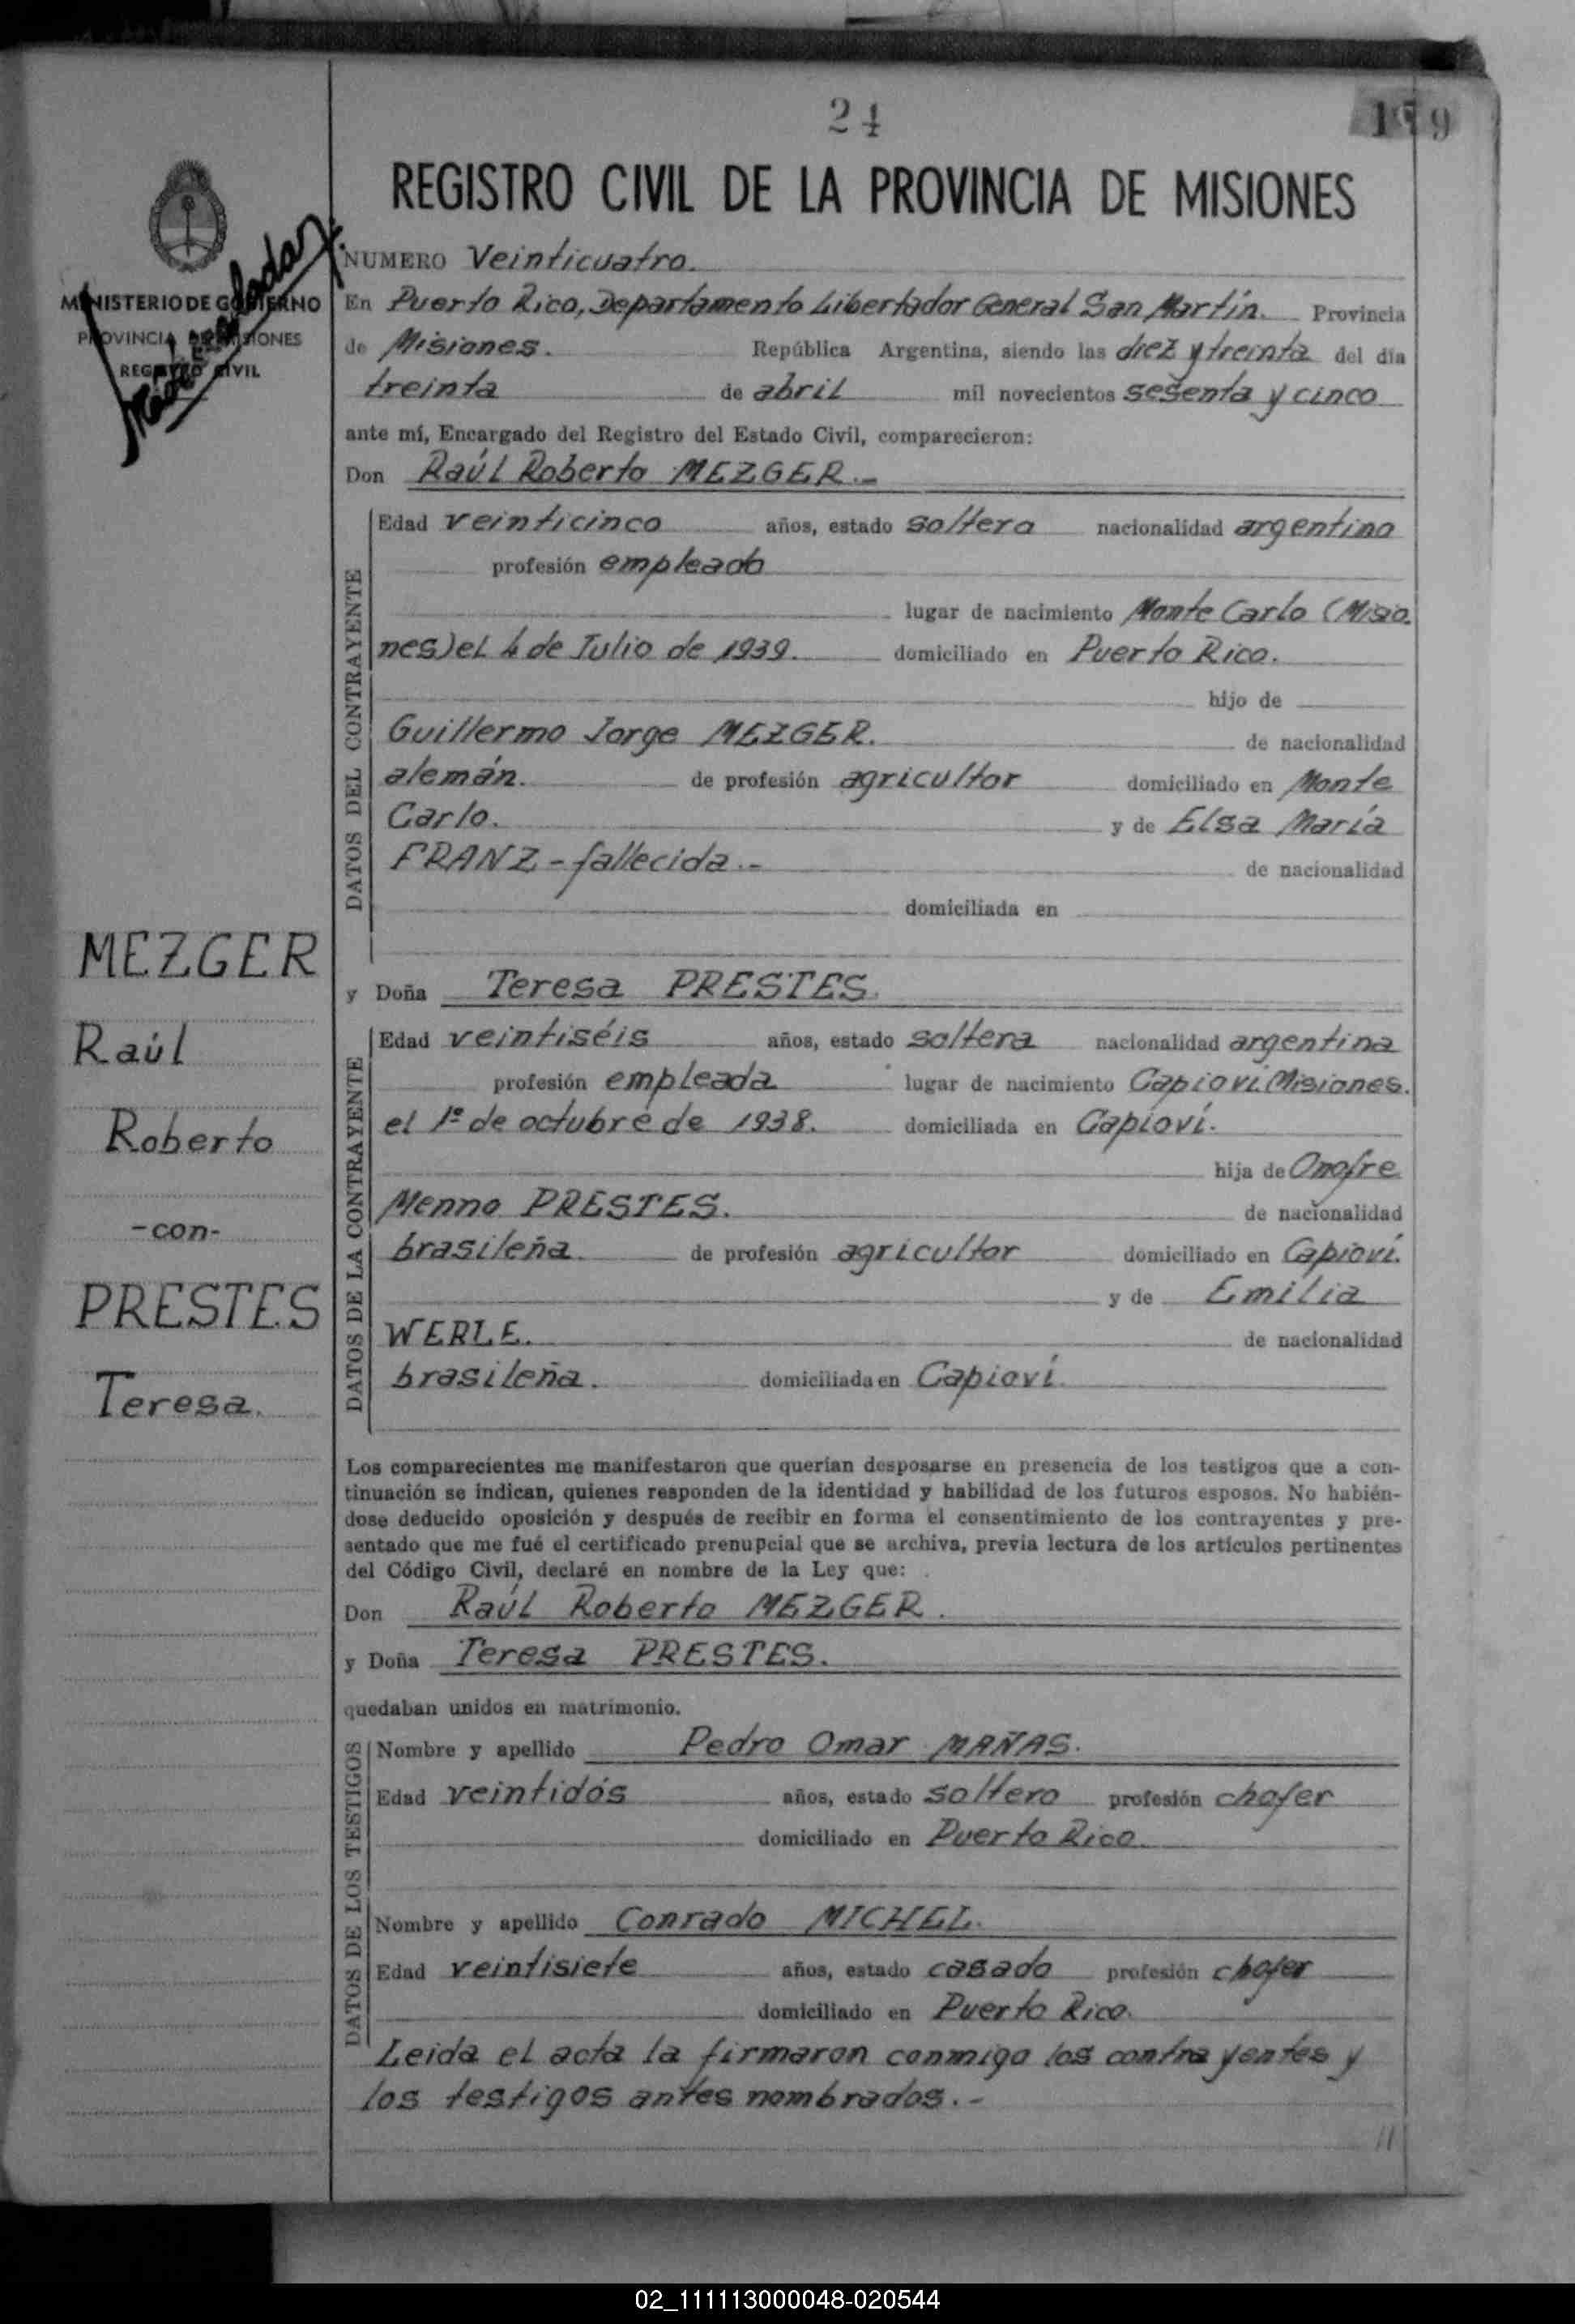 24
199
REGISTRO CIVIL DE LA PROVINCIA DE MISIONES
MINISTERIO DE GOBIERNO
PROVINCIA DE MISIONES
REGISTRO CIVIL
NUMERO Veinticuatro.
En Puerto Rico, Departamento Libertador General San Martín. Provincia
de Misiones. República Argentina, siendo las diez y treinta del día
treinta de abril mil novecientos sesenta y cinco
ante mí, Encargado del Registro del Estado Civil, comparecieron:
Don Raúl Roberto MEZGER.-
DATOS DEL CONTRAYENTE
Edad veinticinco años, estado soltero nacionalidad argentino
profesión empleado
lugar de nacimiento Monte Carlo (Misio.
nes) el 4 de Julio de 1939. domiciliado en Puerto Rico.
hijo de
Guillermo Jorge MEZGER. de nacionalidad
alemán. de profesión agricultor domiciliado en Monte
Carlo. y de Elsa María
FRANZ - fallecida.- de nacionalidad
domiciliada en
MEZGER
Raúl
Roberto
-con-
PRESTES
Teresa.
y Doña Teresa PRESTES.
DATOS DE LA CONTRAYENTE
Edad veintiséis años, estado soltera nacionalidad argentina
profesión empleada lugar de nacimiento Capioví Misiones.
el 1º de octubre de 1938. domiciliada en Capioví.
hija de Onofre
Menno PRESTES. de nacionalidad
brasileña. de profesión agricultor domiciliado en Capioví.
y de Emilia
WERLE. de nacionalidad
brasileña. domiciliada en Capioví.
Los comparecientes me manifestaron que querían desposarse en presencia de los testigos que a con-
tinuación se indican, quienes responden de la identidad y habilidad de los futuros esposos. No habién-
dose deducido oposición y después de recibir en forma el consentimiento de los contrayentes y pre-
sentado que me fué el certificado prenupcial que se archiva, previa lectura de los artículos pertinentes
del Código Civil, declaré en nombre de la Ley que:
Don Raúl Roberto MEZGER.
y Doña Teresa PRESTES.
quedaban unidos en matrimonio.
DATOS DE LOS TESTIGOS
Nombre y apellido Pedro Omar MAÑAS.
Edad veintidós años, estado soltero profesión chofer
domiciliado en Puerto Rico.
Nombre y apellido Conrado MICHEL.
Edad veintisiete años, estado casado profesión chofer
domiciliado en Puerto Rico.
Leida el acta la firmaron conmigo los contrayentes y
los testigos antes nombrados.-
02_111113000048-020544